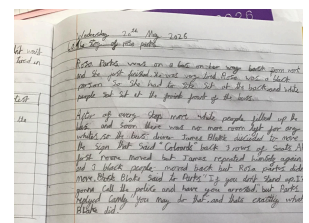 Wednesday 20th May 2026
The Story of rosa parks
Rosa Parks was on a bus on her way back from work
and she just finished. She was very tired Rosa was a black
person so she had to sit at the back and white
people sat at the front of the bus.
After every stop more white people filled up the
bus and soon there was no more room left for any
whites, so the bus driver James Blake decided to move
the sign that said "Coloureds" back 3 rows of seats. At
first noone moved but James repeated himself again
and 3 black people moved back but Rosa parks didn't
move. Blake said to Parks "If you don't stand up, I'm
gonna call the police and have you arrested, but Parks
replyed calmly You may do that and thats exactly what
Blake did.